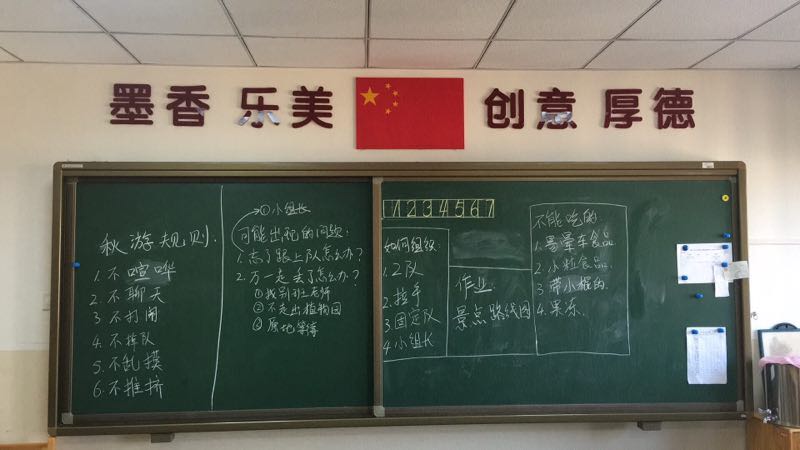 墨香 乐美 创意 厚德
秋游规则.
1.不喧哗
2.不聊天
3.不打闹
4.不掉队
5.不乱摸
6.不推挤
①小组长
可能出现的问题:
1.忘了跟上队怎么办?
2.万一走丢了怎么办?
①找别班老师
②不走出植物园
③原地等待
1234567
如何组织:
1.2队
2.拉手
3固定队
4小组长
作业
景点路线图
不能吃的
1.晕车食品
2.小粒食品
3.带小棍的.
4.果冻.